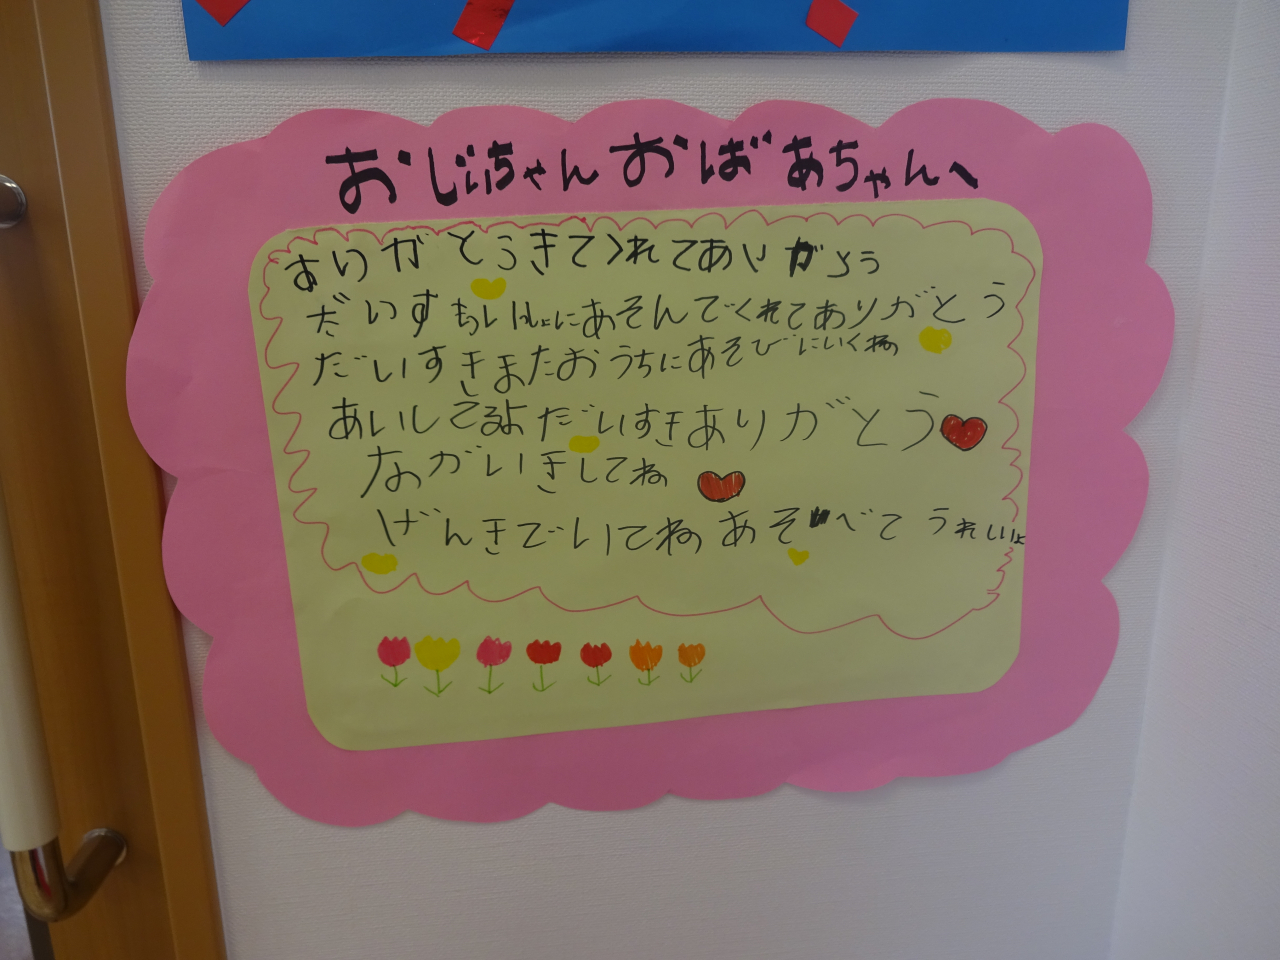 おじいちゃんおばあちゃんへ
ありがとうきてくれてありがとう
だいすきいっしょにあそんでくれてありがとう
だいすきまたおうちにあそびにいくね
あいしてるよだいすきありがとう
ながいきしてね
げんきでいてねあそべてうれしいよ